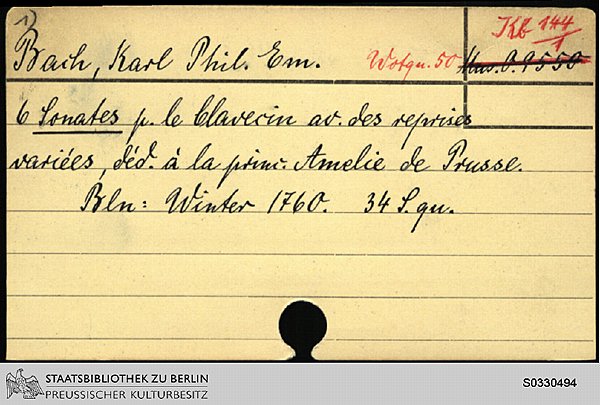 1)
Bach, Karl Phil. Em.
Wotqu. 50
Kb 144/1
Mus. O. 9550
6 Sonates p. le Clavecin av. des reprises
variées, déd. à la princ. Amelie de Prusse.
Bln: Winter 1760. 34 S. qu.
STAATSBIBLIOTHEK ZU BERLIN
PREUSSISCHER KULTURBESITZ
S0330494